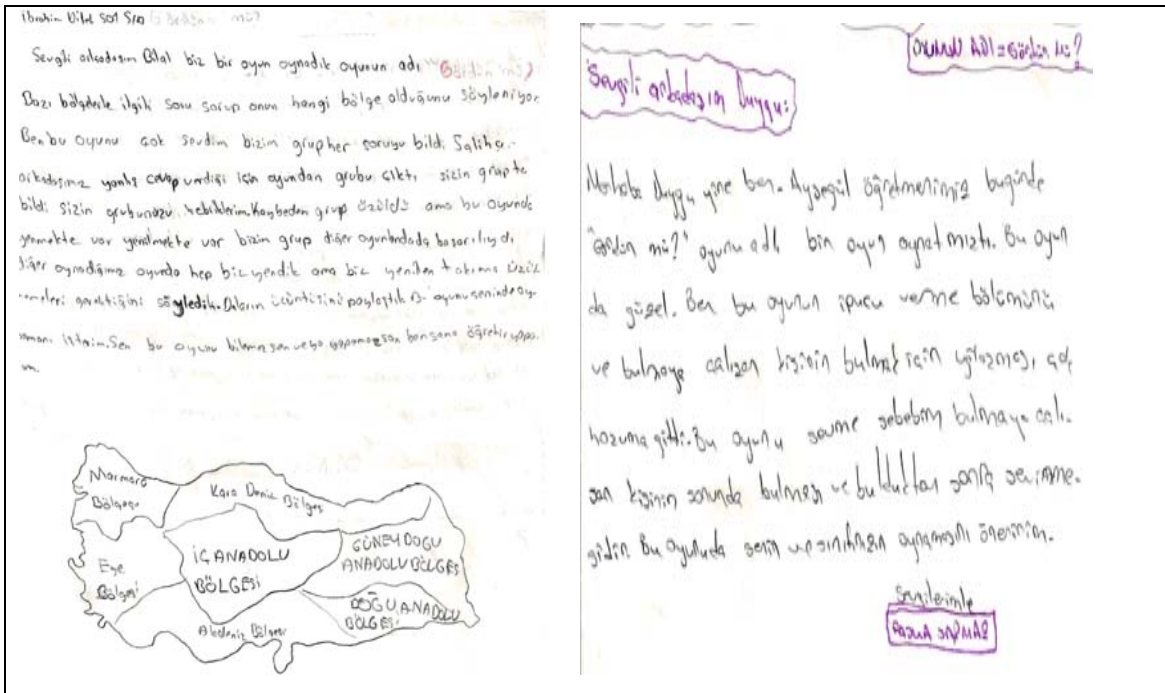 Sevgli arkadaşım Bilal biz bir oyun oynadık oyunun adı
Bazı bölgelerle ilgili soru sorup onun hangi bölge olduğunu söyleniyor.
Ben bu oyunu çok sevdim bizim grup her soruyu bildi Saliha
arkadaşımız yanlış cevap verdiği için oyundan grubu çıktı sizin grupte
bildi sizin grubunuzu tebiklerim. Kaybeden grup üzüldü ama bu oyunda
yenmekte var yenilmekte var bizim grup diğer oyunlardada başarılıydı
diğer oynadığımız oyunda hep biz yendik ama biz yenilen takıma üzül
memeleri gerektiğini söyledik. Onların üzüntüsünü paylaştık Bu oyunu seninde oy
namanı isterim. Sen bu oyunu bilemezsen veya yapamazsan ben sana öğretir yapa
Marmara
Bölgesi
Kara Deniz Bölgesi
Ege
Bölgesi
İÇ ANADOLU
BÖLGESİ
GÜNEYDOĞU
ANADOLU BÖLGESİ
DOĞU ANADOLU
BÖLGESİ
Akdeniz Bölgesi
OYUNUN ADI = Gördün Mü?
Sevgili arkadaşım Duygu:
Merhaba Duygu yine ben. Ayşegül öğretmenimiz bugünde
"Gördün mü?" oyunu adlı bir oyun oynatmıştı. Bu oyun
da güzel. Ben bu oyunun ipucu verme bölümünü
ve bulmaya çalışan kişinin bulmak için uğraşması, çok
hoşuma gitti. Bu oyunu sevme sebebim bulmaya çalı-
şan kişinin sonunda bulması ve bulduktan sonra sevinme-
sidir. Bu oyunuda senin ve sınıfınızın oynamasını öneririm.
Sevgilerimle